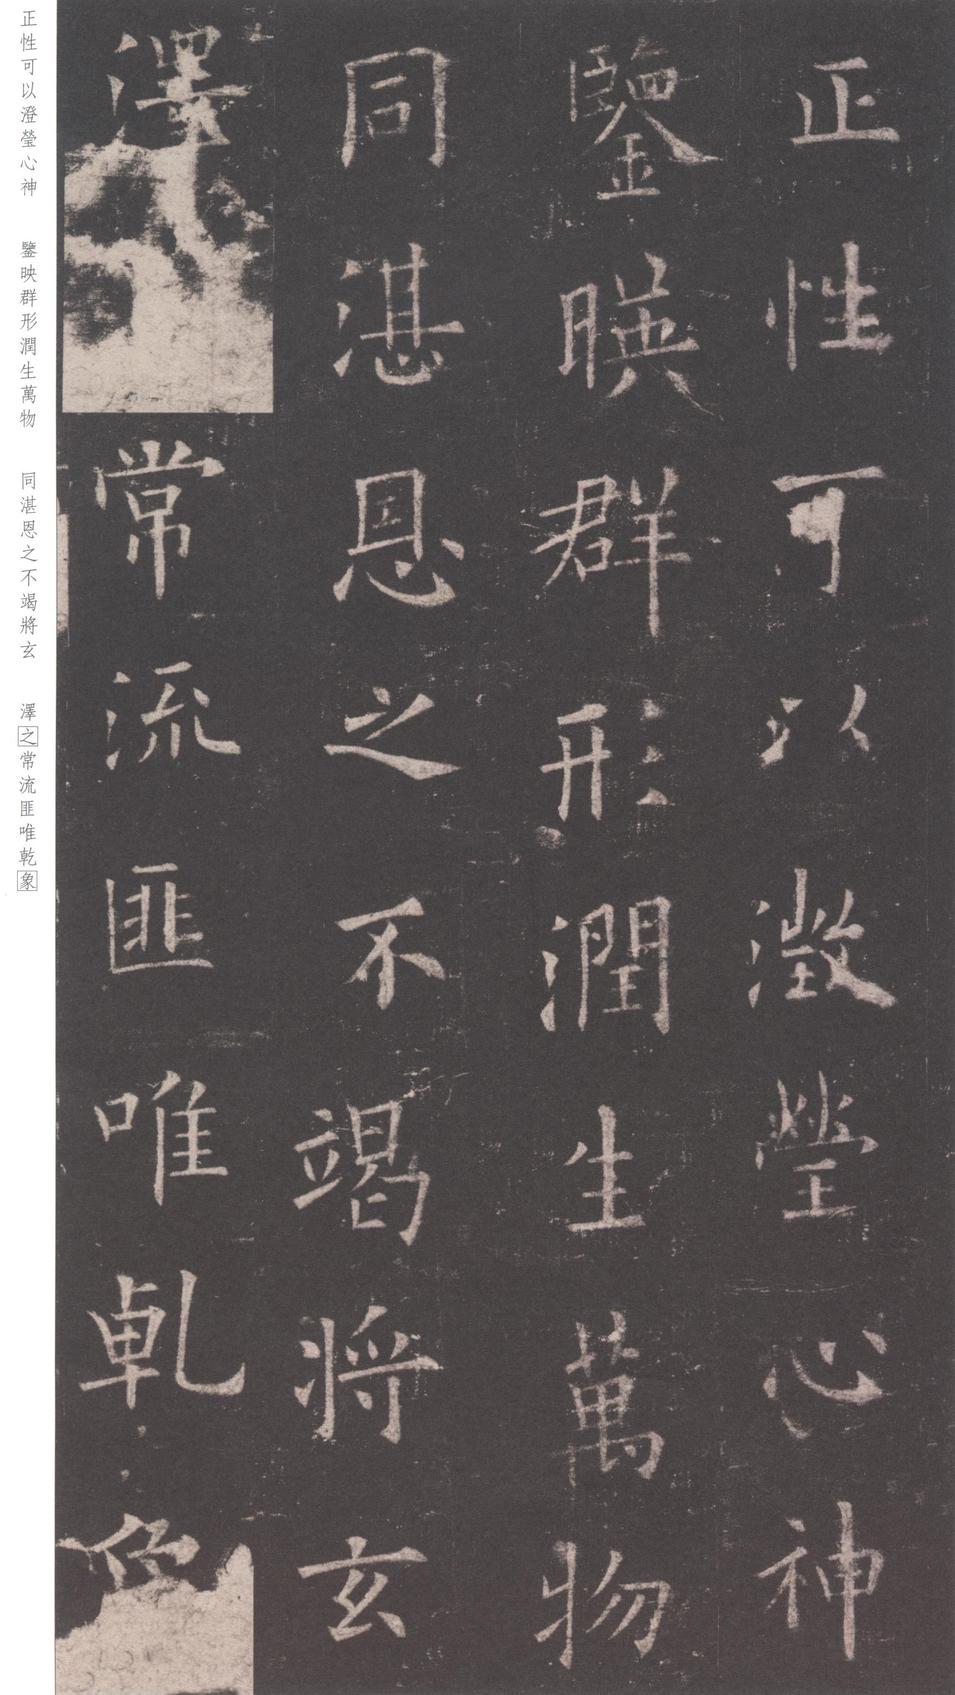 正性可以澂瑩心神
鑒暎群形潤生萬物
同湛恩之不竭將玄
澤常流匪唯乾象
正性可以澄瑩心神 鑒映群形潤生萬物 同湛恩之不竭將玄 澤之常流匪唯乾象